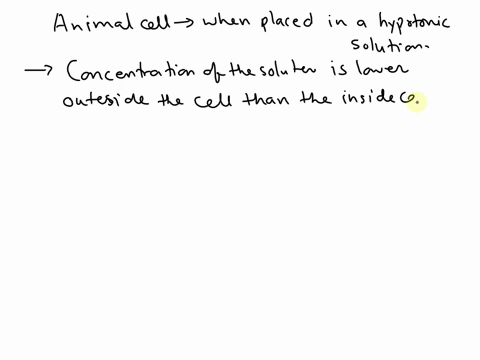 Animal cell → when placed in a hypotonic
solution.
→ Concentration of the soluter is lower
outeside the cell than the inside co.